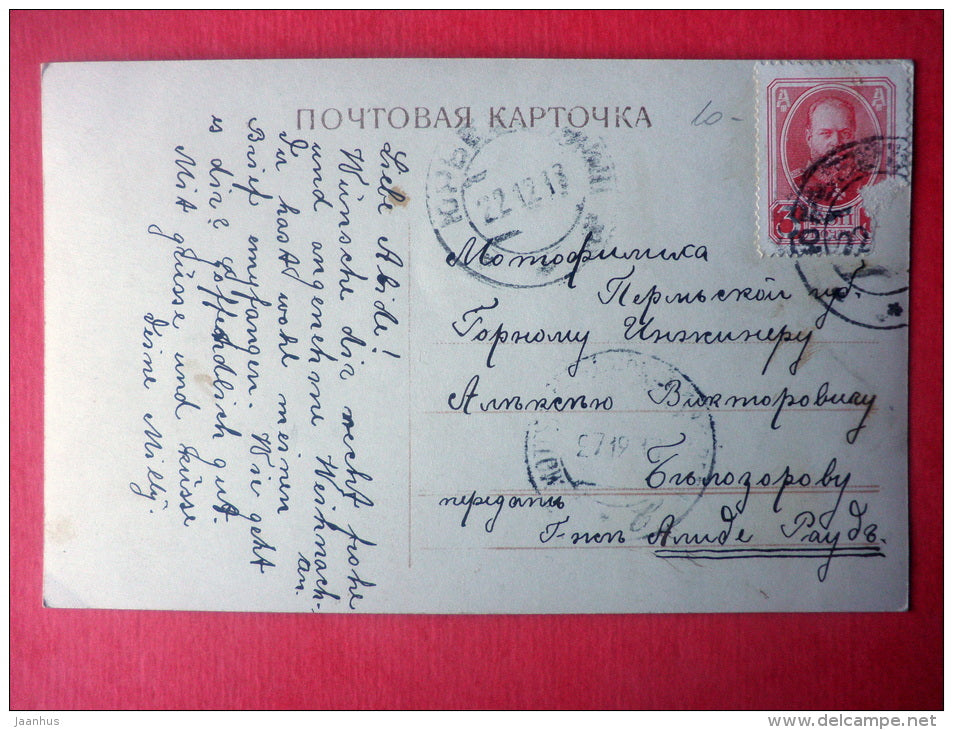 ПОЧТОВАЯ КАРТОЧКА
10-
Liebe Alide!
Wünsche dir recht frohe
und angenehme Weihnach-
ten.
Du hast wohl meinen
Brief empfangen. Wie geht
es dir? Hoffendlich gut.
Mit Grüsse und Küsse
Deine Milly.
22.12.13
Мотофилиха
Пермьской губ.
Горному Инжинеру
Алѣксѣю Викторовичу
Бѣлозорову
передать
Г-жѣ Алиде Раудъ.
Jaanhus
www.delcampe.net